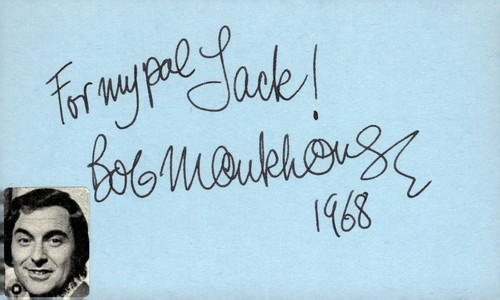 For my pal Jack!
Bob Monkhouse
1968